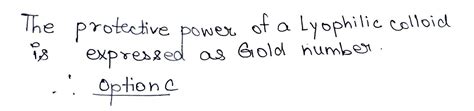 The protective power of a Lyophilic colloid
is expressed as Gold number.
∴ Option C